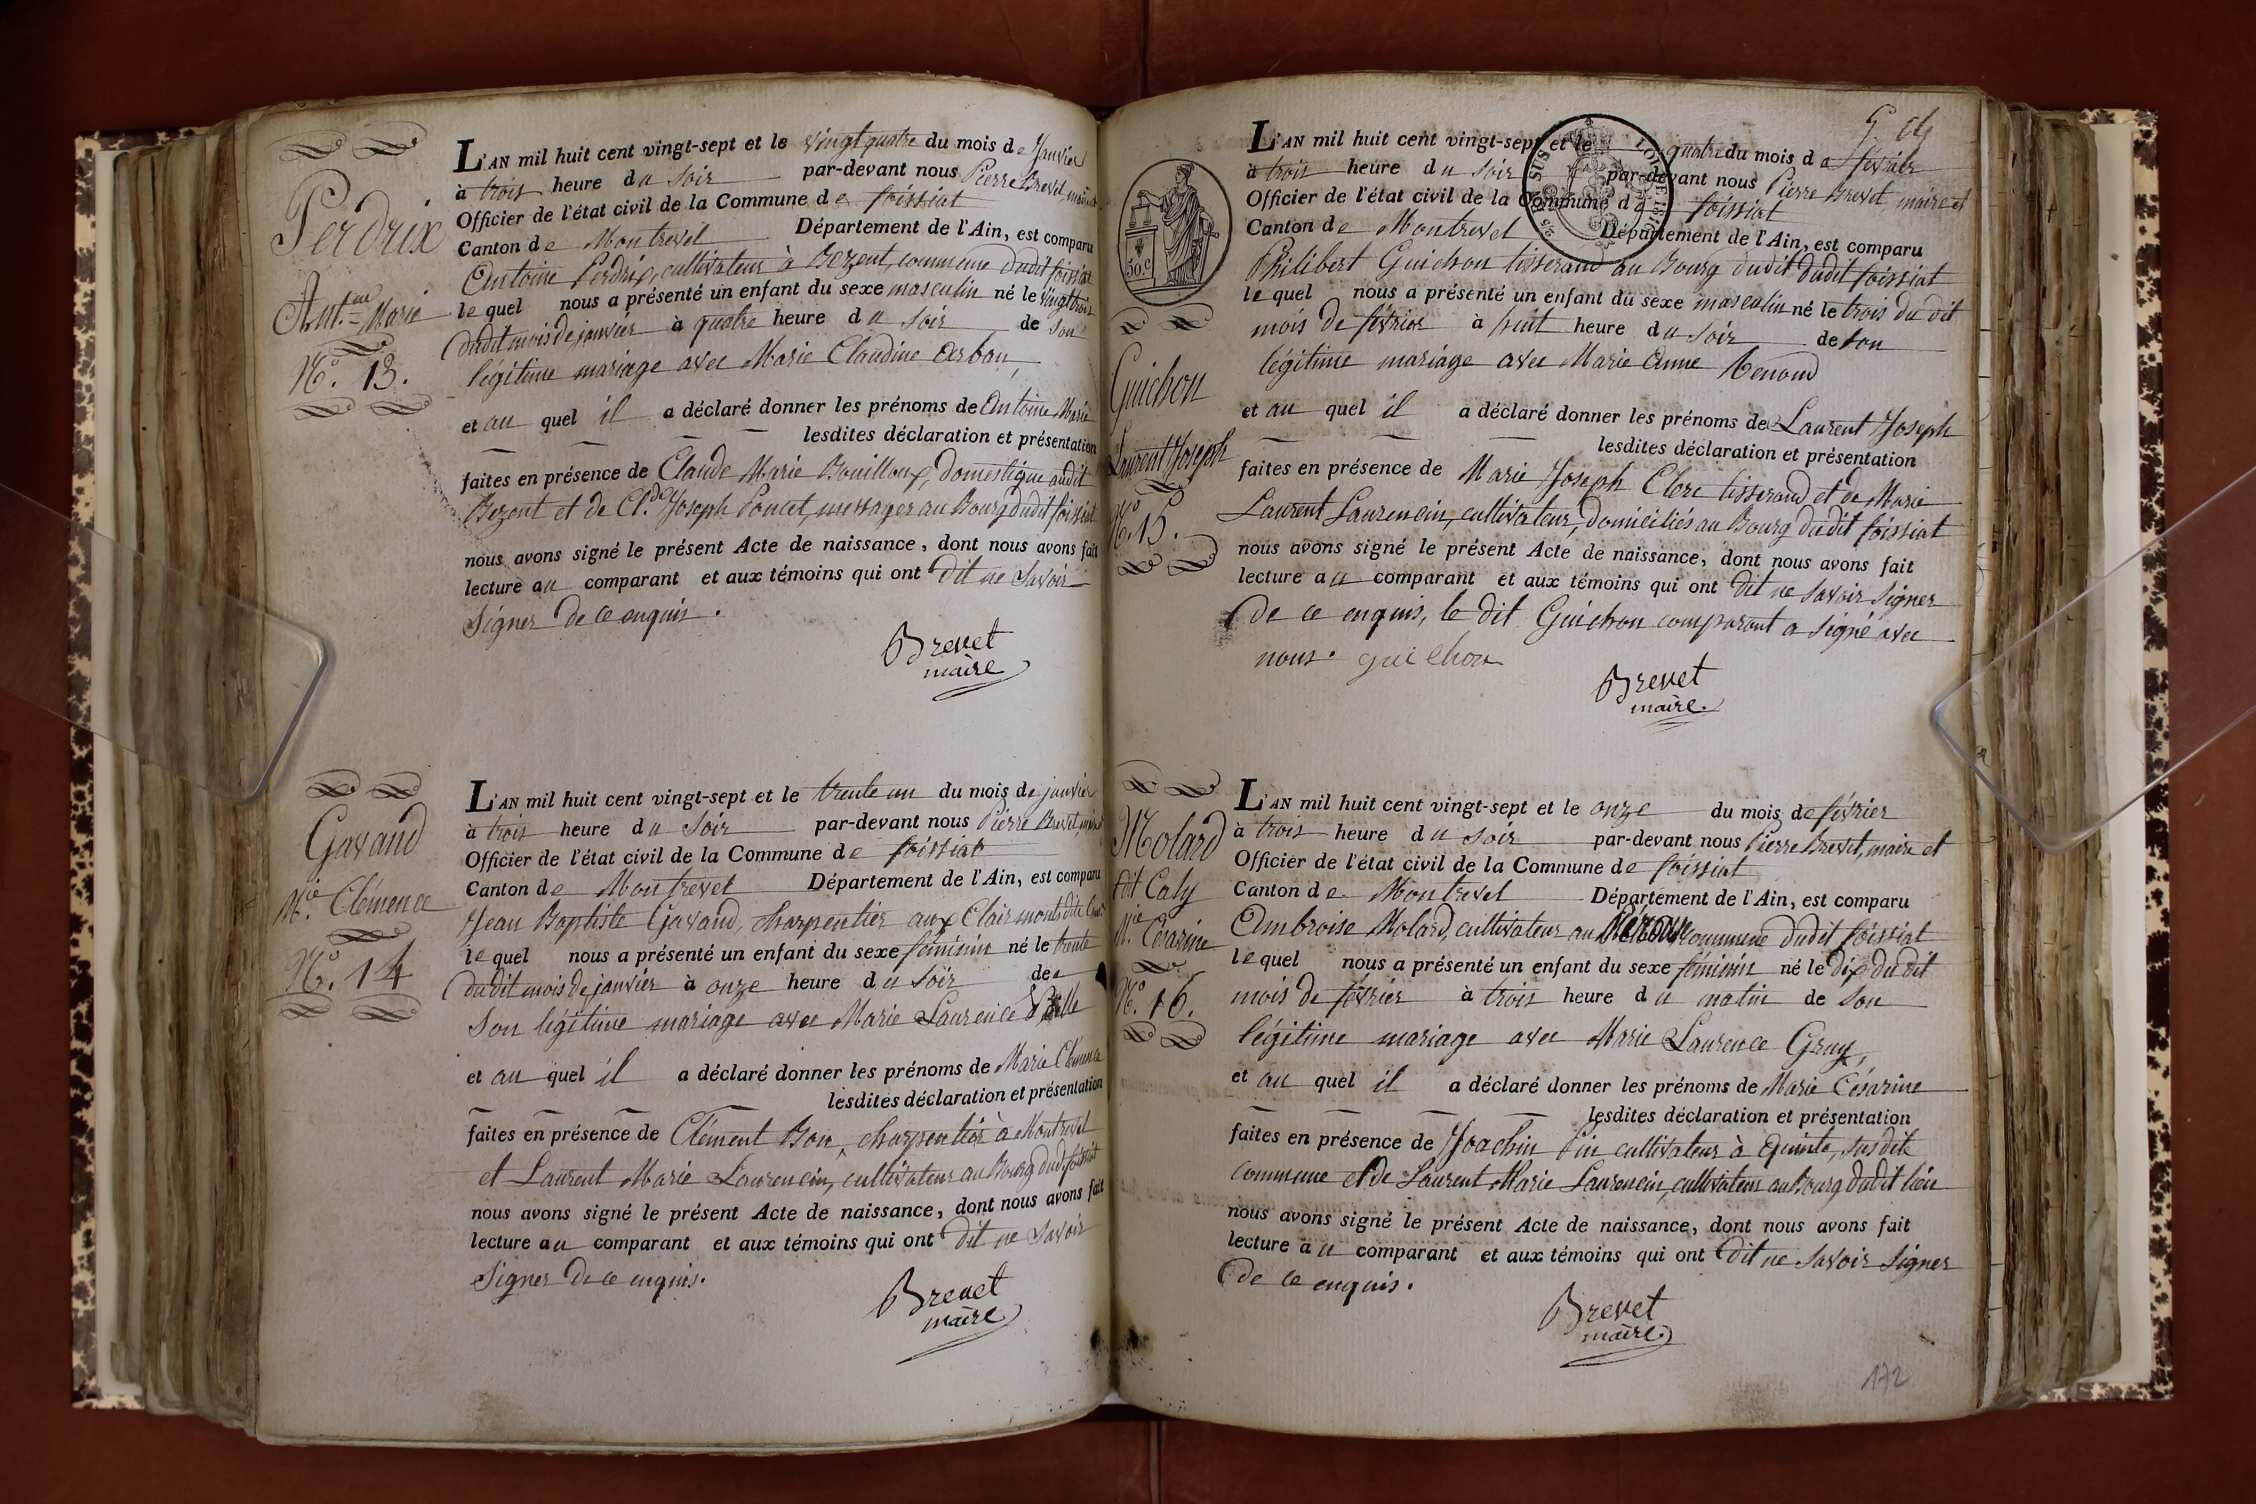 Perdrix
Ant.ne Marie
N.o 13.
L'AN mil huit cent vingt-sept et le vingt quatre du mois de Janvier
à trois heure du soir par-devant nous Pierre Brevet, maire et
Officier de l'état civil de la Commune de foissiat
Canton de Montrevel Département de l'Ain, est comparu
Antoine Perdrix, cultivateur à Bezent, commune dudit foissiat
lequel nous a présenté un enfant du sexe masculin né le vingt trois
dudit mois de janvier à quatre heure du soir de son
légitime mariage avec Marie Claudine
et au quel il a déclaré donner les prénoms de Antoine Marie
lesdites déclaration et présentation
faites en présence de Claude Marie Bouilloux, domestique audit
Bezent et de Cl.de Joseph Poncet, messager au Bourg dudit foissiat
nous avons signé le présent Acte de naissance, dont nous avons fait
lecture au comparant et aux témoins qui ont dit ne savoir
signer de ce enquis.
Brevet
maire
Gavand
M.ie Clémence
N.o 14
L'AN mil huit cent vingt-sept et le trente un du mois de janvier
à trois heure du soir par-devant nous Pierre Brevet, maire et
Officier de l'état civil de la Commune de foissiat
Canton de Montrevel Département de l'Ain, est comparu
Jean Baptiste Gavand, charpentier aux Clairmonts dite
lequel nous a présenté un enfant du sexe féminin né le trente
dudit mois de janvier à onze heure du soir de
son légitime mariage avec Marie Laurence
et au quel il a déclaré donner les prénoms de Marie Clémence
lesdites déclaration et présentation
faites en présence de Clément Bon, charpentier à Montrevel
et Laurent Marie Laurencin, cultivateur au Bourg dud. foissiat
nous avons signé le présent Acte de naissance, dont nous avons fait
lecture au comparant et aux témoins qui ont dit ne savoir
signer de ce enquis.
Brevet
maire
50 c
Guichon
Laurent Joseph
N.o 15.
L'AN mil huit cent vingt-sept et le quatre du mois de février
à trois heure du soir par-devant nous Pierre Brevet, maire et
Officier de l'état civil de la Commune de foissiat
Canton de Montrevel Département de l'Ain, est comparu
Philibert Guichon tisserand au Bourg dudit dudit foissiat
lequel nous a présenté un enfant du sexe masculin né le trois du dit
mois de février à huit heure du soir de son
légitime mariage avec Marie Anne Renoud
et au quel il a déclaré donner les prénoms de Laurent Joseph
lesdites déclaration et présentation
faites en présence de Marie Joseph Clerc tisserand et de Marie
Laurent Laurencin, cultivateur, domiciliés au Bourg dudit foissiat
nous avons signé le présent Acte de naissance, dont nous avons fait
lecture au comparant et aux témoins qui ont dit ne savoir signer
de ce enquis, le dit Guichon comparant a signé avec
nous. guichon
Brevet
maire.
Molard
dit Caly
M.ie Césarine
N.o 16.
L'AN mil huit cent vingt-sept et le onze du mois de février
à trois heure du soir par-devant nous Pierre Brevet, maire et
Officier de l'état civil de la Commune de foissiat
Canton de Montrevel Département de l'Ain, est comparu
Ambroise Molard, cultivateur au commune dudit foissiat
lequel nous a présenté un enfant du sexe féminin né le dix du dit
mois de février à trois heure du matin de son
légitime mariage avec Marie Laurence Gruy,
et au quel il a déclaré donner les prénoms de Marie Césarine
lesdites déclaration et présentation
faites en présence de Joachin Pin cultivateur à Quinte, susdite
commune et de Laurent Marie Laurencin, cultivateur au Bourg dudit lieu
nous avons signé le présent Acte de naissance, dont nous avons fait
lecture au comparant et aux témoins qui ont dit ne savoir signer
de ce enquis.
Brevet
maire
172